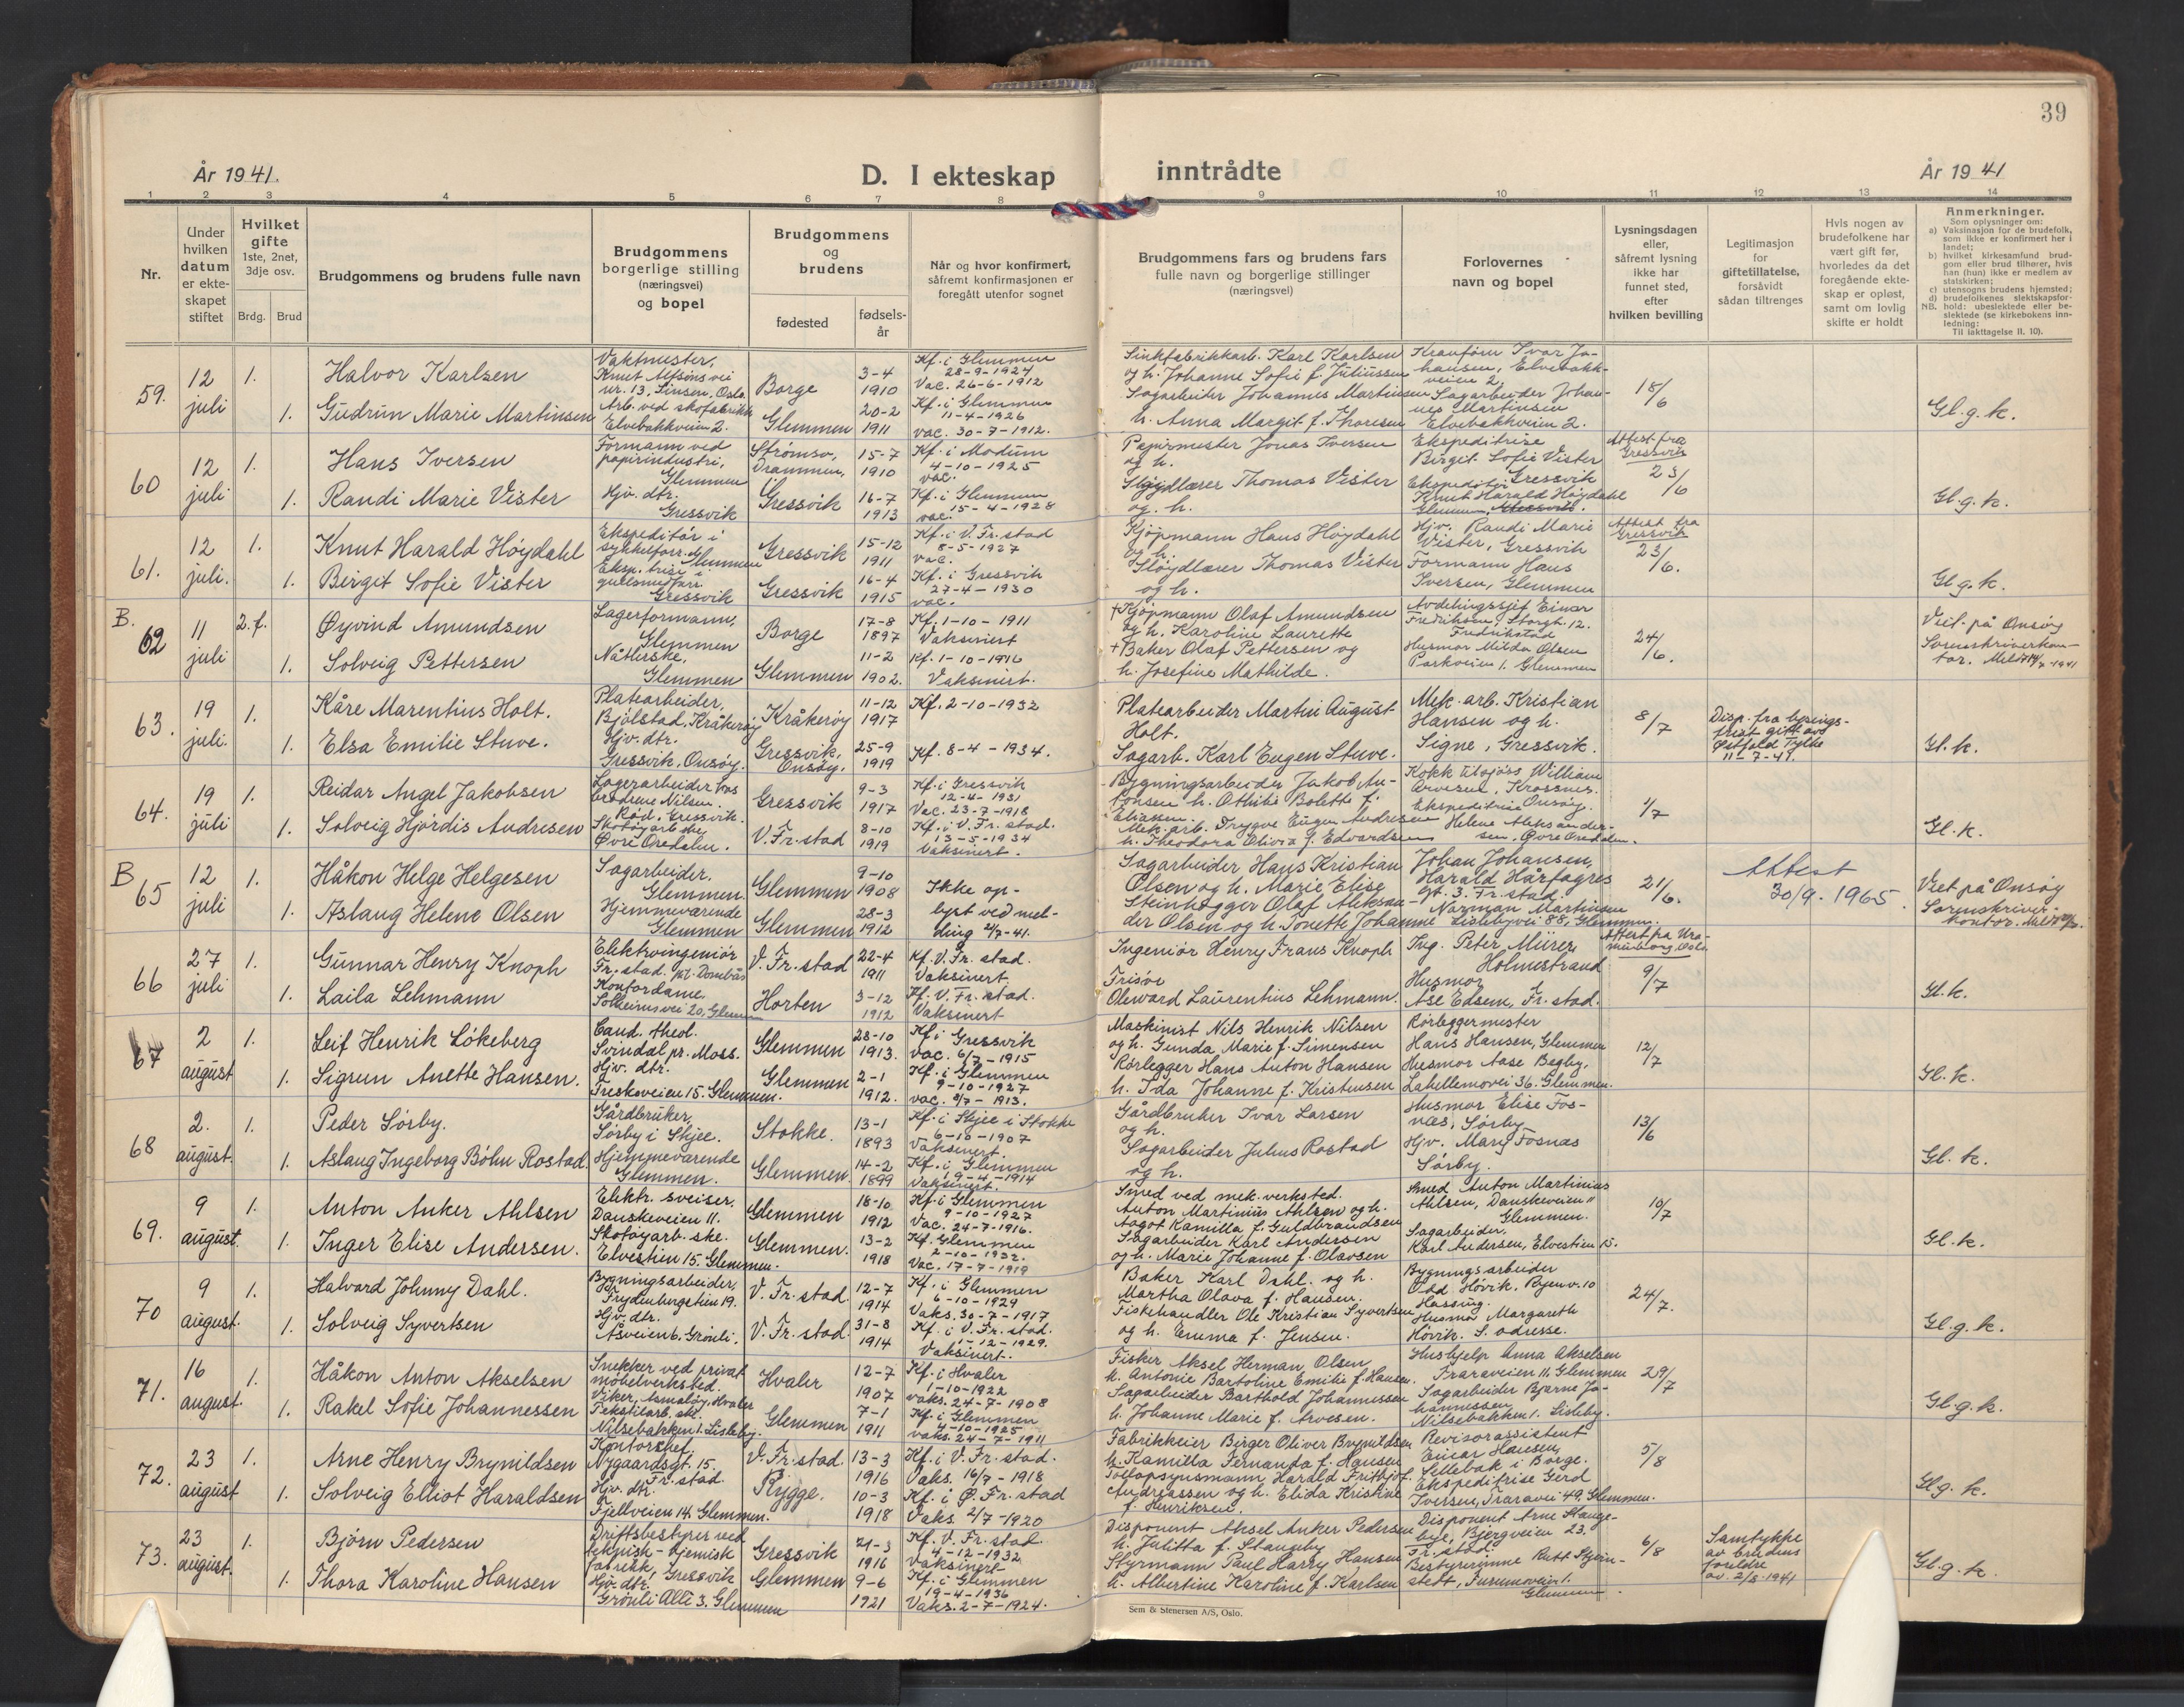 39
År 1941.
D. I ekteskap inntrådte
År 1941
1 2 3 4 5 6 7 8 9 10 11 12 13 14
Nr.
Under hvilken datum er ekteskapet stiftet
Hvilket gifte
1ste, 2net, 3dje osv.
Brdg. Brud
Brudgommens og brudens fulle navn
Brudgommens borgerlige stilling (næringsvei) og bopel
Brudgommens og brudens
fødested
fødselsår
Når og hvor konfirmert, såfremt konfirmasjonen er foregått utenfor sognet
Brudgommens fars og brudens fars fulle navn og borgerlige stillinger (næringsvei)
Forlovernes navn og bopel
Lysningsdagen eller, såfremt lysning ikke har funnet sted, efter hvilken bevilling
Legitimasjon for giftetillatelse, forsåvidt sådan tiltrenges
Hvis nogen av brudefolkene har vært gift før, hvorledes da det foregående ekteskap er opløst, samt om lovlig skifte er holdt
Anmerkninger.
Som oplysninger om:
a) Vaksinasjon for de brudefolk, som ikke er konfirmert her i landet;
b) hvilket kirkesamfund brudgom eller brud tilhører, hvis han (hun) ikke er medlem av statskirken;
c) utensogns brudens hjemsted;
d) brudefolkenes slektskapsforhold: ubeslektede eller beslektede (se kirkebokens innledning:
NB. Til iakttagelse II. 10).
59. 12 juli 1. Halvor Karlsen
Vaktmester, Knut Alfsøns vei nr. 13, Sinsen, Oslo
Borge 3-4 1910
Kf. i Glemmen 28-9-1924 Vac. 26-6-1912
Sinkfabrikkarb. Karl Karlsen og h. Johanne Sofie f. Juliussen
Kranfører Ivar Johansen, Elvebakkveien 2,
18/6
1. Gudrun Marie Martinsen
Arb. ved skofabrikk Elvebakkveien 2.
Glemmen 20-2 1911
Kf. i Glemmen 11-4-1926 vac. 30-7-1912.
Sagarbeider Johannes Martinsen h. Anna Margit f. Thoresen
Sagarbeider Johannes Martinsen Elvebakkveien 2.
Gl.g.k.
60 12 juli 1. Hans Iversen
Formann ved papirindustri, Glemmen
Strømsø, Drammen, 15-7 1910
Kf. i Modum 4-10-1925 vac.
Papirmester Jonas Iversen og h.
Ekspeditrise Birgit Sofie Vister Gressvik
Attest fra Gressvik 23/6
1. Randi Marie Vister
Hjv. dtr. Gressvik
Gressvik 16-7 1913
Kf. i Glemmen 15-4-1928 vac.
Sløydlærer Thomas Vister og. h.
Ekspeditør Knut Harald Høydahl Glemmen, Gressvik.
Gl.g.k.
61. 12 juli. 1. Knut Harald Höydahl
Ekspeditør i sykkelforr. Glemmen
Gressvik 15-12 1911
Kf. i V. Fr. stad 8-5-1927 vac.
Kjøpmann Hans Høydahl og h.
Hjv. Randi Marie Vister, Gressvik
Attest fra Gressvik 23/6.
1. Birgit Sofie Vister
Eksp. trise i gullsmedforr. Gressvik
Gressvik 16-4 1915
Kf. i Gressvik 27-4-1930 vac.
Sløydlærer Thomas Vister og h.
Formann Hans Iversen, Glemmen
Gl.g.k.
B. 62 11 juli 2.f. Øyvind Amundsen
Lagerformann, Glemmen
Borge 17-8 1897
Kf. 1-10-1911 Vaksinert
+Kjøpmann Olaf Amundsen og h. Karoline Laurette
Avdelingssjef Einar Fredriksen, Storgt. 12. Fredrikstad
24/6.
1. Solveig Pettersen
Nåtlerske, Glemmen
Glemmen 11-2 1902.
Kf. 1-10-1916 Vaksinert.
+Baker Olaf Pettersen og h. Josefine Mathilde.
Husmor Milda Olsen Parkveien 1. Glemmen
Viet på Onsøy Sorenskriverkontor. Meldt 14/7 1941
63. 19 juli. 1. Kåre Marentius Holt.
Platearbeider, Bjølstad, Kråkerøy
Kråkerøy 11-12 1917
Kf. 2-10-1932
Platearbeider Martin August Holt.
Mek. arb. Kristian Hansen og h. Signe, Gressvik.
8/7
Disp. fra lysings- frist gitt av Østfold Fylke 11-7-41.
1. Elsa Emilie Stuve.
Hjv. dtr. Gressvik, Onsøy.
Gressvik, Onsøy, 25-9 1919
Kf. 8-4-1934.
Sagarb. Karl Eugen Stuve.
Gl.k.
64. 19 juli 1. Reidar Angel Jakobsen
Lagerarbeider hos brødrene Nilsen. Rød, Gressvik.
Gressvik 9-3 1917
Kf. i Gressvik 12-4-1931 Vac. 23-7-1918
Bygningsarbeider Jakob Antonsen h. Othilie Bolette f. Eliassen.
Kokk tilsjøss William Arvesen, Krossnes. Onsøy.
1/7
1. Solveig Hjørdis Andresen
Skotøyarb.ske Øvre Oredalen.
V. Fr. stad 8-10 1919
Kf. i V. Fr. stad. 13-5-1934 Vaksinert.
Mek. arb. Trygve Eugen Andresen h. Theodora Olivia f. Edvardsen
Ekspeditrise Helene Aleksandersen, Øvre Oredalen.
Gl.k.
B 65 12 juli 1. Håkon Helge Helgesen
Sagarbeider, Glemmen.
Glemmen 9-10 1908
Ikke oplyst ved melding 21/7-41.
Sagarbeider Hans Kristian Olsen og h. Marie Elise
Johan Johansen, Harald Hårfagres gt. 3. Fr. stad.
21/6.
Attest 30/9. 1965.
1. Aslaug Helene Olsen
Hjemmeværende Glemmen
Glemmen 28-3 1912
Steinhugger Olaf Aleksander Olsen og h. Jonette Johanne
Norman Martinsen Lislebyvei 88, Glemmen.
Viet på Onsøy Sorenskriverkontor.
66 27 juli 1. Gunnar Henry Knoph
Elektroingeniør Fr. stad. pt. Dombås
V. Fr. stad 22-4 1911
Kf. V. Fr. stad. Vaksinert.
Ingeniør Henry Frans Knoph
Ing. Peter Mürer, Holmestrand
Attest fra Uranienborg, Oslo. 9/7
1. Laila Lehmann
Kontordame, Solheimsvei 20, Glemmen
Horten 3-12 1912
Kf. V. Fr. stad. Vaksinert
Frisør Oleward Laurentius Lehmann.
Husmor Åse Edsem, Fr. stad.
Gl.k.
67 2 august 1. Leif Henrik Løkeberg
Cand. theol. Svindal pr. Moss.
Glemmen 28-10 1913.
Kf. i Gressvik vac. 6/7-1915
Maskinist Nils Henrik Nilsen og h. Gunda Marie f. Simensen
Rørleggermester Hans Hansen, Glemmen
12/7
1. Sigrun Anette Hansen.
Hjv. dtr. Treskeveien 15. Glemmen.
Glemmen 2-1 1912.
Kf. i Glemmen 9-10-1927 vac. 8/7-1913.
Rørlegger Hans Anton Hansen h. Ida Johanne f. Kristensen
Husmor Aase Begby, Lahellemovei 36. Glemmen.
Gl.k.
68 2. august. 1. Peder Sørby.
Gårdbruker, Sørby i Skjee.
Stokke. 13-1 1893
Kf. i Skjee i Stokke 6-10-1907 Vaksinert.
Gårdbruker Ivar Larsen og h.
Husmor Elise Fosnæs, Sørby
13/6
1. Aslaug Ingeborg Bøhn Rostad.
Hjemmeværende Glemmen.
Glemmen. 14-2 1899
Kf. i Glemmen 19-4-1914 Vaksinert.
Sagarbeider Julius Rostad og h.
Hjv. Mary Fosnæs Sørby.
Gl.k.
69. 9 august. 1. Anton Anker Ahlsen
Elektr. sveiser. Danskeveien 11.
Glemmen 18-10 1912
Kf. i Glemmen 9-10-1927 Vac. 24-7-1916.
Smed ved mek. verksted. Anton Martinius Ahlsen og h. Aagot Kamilla f. Guldbrandsen
Smed Anton Martinius Ahlsen, Danskeveien 11 Glemmen.
10/7
1. Inger Elise Andersen.
Skotøyarb. ske. Elvestien 15. Glemmen.
Glemmen. 13-2 1918
Kf. Glemmen 2-10-1932. Vac. 17-7-1919
Sagarbeider Karl Andersen og h. Marie Johanne f. Olavsen
Sagarbeider, Karl Andersen, Elvestien 15.
Gl.k.
70 9 august. 1. Halvard Johnny Dahl.
Bygningsarbeider, Frydenbergstien 19.
V. Fr. stad. 12-7 1914
Kf. i Glemmen 6-10-1929 Vaks. 30-7-1917
Baker Karl Dahl. og h. Martha Olava f. Hansen.
Bygningsarbeider Odd Høvik, Byenv. 10 Hassing.
24/7.
1. Solveig Syvertsen
Hjv. dtr. Åsveien 6. Grønli.
V. Fr. stad. 31-8 1914
Kf. i V. Fr. stad. 1-12-1929. Vaksinert.
Fiskehandler Ole Kristian Syvertsen og h. Emma f. Jensen.
Husmor Margareth Høvik. S. adresse.
Gl.g.k.
71. 16 august. 1. Håkon Anton Akselsen
Snekker ved privat møbelverksted. Viker, Asmaløy, Hvaler
Hvaler 12-7 1907
Kf. i Hvaler 1-10-1922 vaks. 24-7-1908
Fisker Aksel Herman Olsen h. Antonie Bartoline Emilie f. Hansen.
Hushjelp Anna Akselsen Traraveien 11. Glemmen
29/7
1. Rakel Sofie Johannessen
Tekstilarb. ske. Nilsebakken 1. Lisleby.
Glemmen 7-1 1911
Kf. i Glemmen 4-10-1925 vaks. 24-7-1911
Sagarbeider Barthold Johannessen h. Johanne Marie f. Arvesen.
Sagarbeider Bjarne Johannessen Nilsebakken 1. Lisleby.
Gl.g.k.
72. 23 august 1. Arne Henry Brynildsen
Kontorchef, Nygaardsgt. 15. Fr. stad.
V. Fr. stad. 13-3 1916
Kf. i V. Fr. stad. Vaks. 16/7-1918
Fabrikkeier Birger Oliver Brynildsen h. Kamilla Fernanda f. Hansen
Revisorassistent Einar Hansen, Sellebak i Borge.
5/8
1. Solveig Elliot Haraldsen
Hjv. dtr. Fjellveien 14. Glemmen.
Rygge. 10-3 1918
Kf. i Ø. Fr. stad Vaks. 2/7-1920
Tollopsynsmann Harald Fritbjof Andreassen og h. Elida Kristine f. Henriksen.
Ekspeditrise Gerd Iversen, Traravei 49. Glemmen.
Gl.g.k.
73. 23 august. 1. Bjørn Pedersen
Driftsbestyrer ved teknisk-kjemisk fabrikk, Gressvik
Gressvik 21-3 1916
Kf. V. Fr. stad. 4-12-1932 Vaksinert
Disponent Aksel Anker Pedersen h. Julitta f. Stangeby
Disponent Arne Stangebye, Bjergveien 23. Fr. stad.
6/8
Samtykke av brudens foreldre av. 2/8-1941
1. Thora Karoline Hansen
Hjv. dtr. Grønli Allé 3. Glemmen
Glemmen 9-6 1921
Kf. i Glemmen 19-4-1936 Vaks. 2-7-1924.
Styrmann Paul Harry Hansen h. Albertine Karoline f. Karlsen
Bestyrerinne Rutt Stjernstedt, Furumoveien 1. Glemmen.
Gl.g.k.
Sem & Stenersen A/S, Oslo.